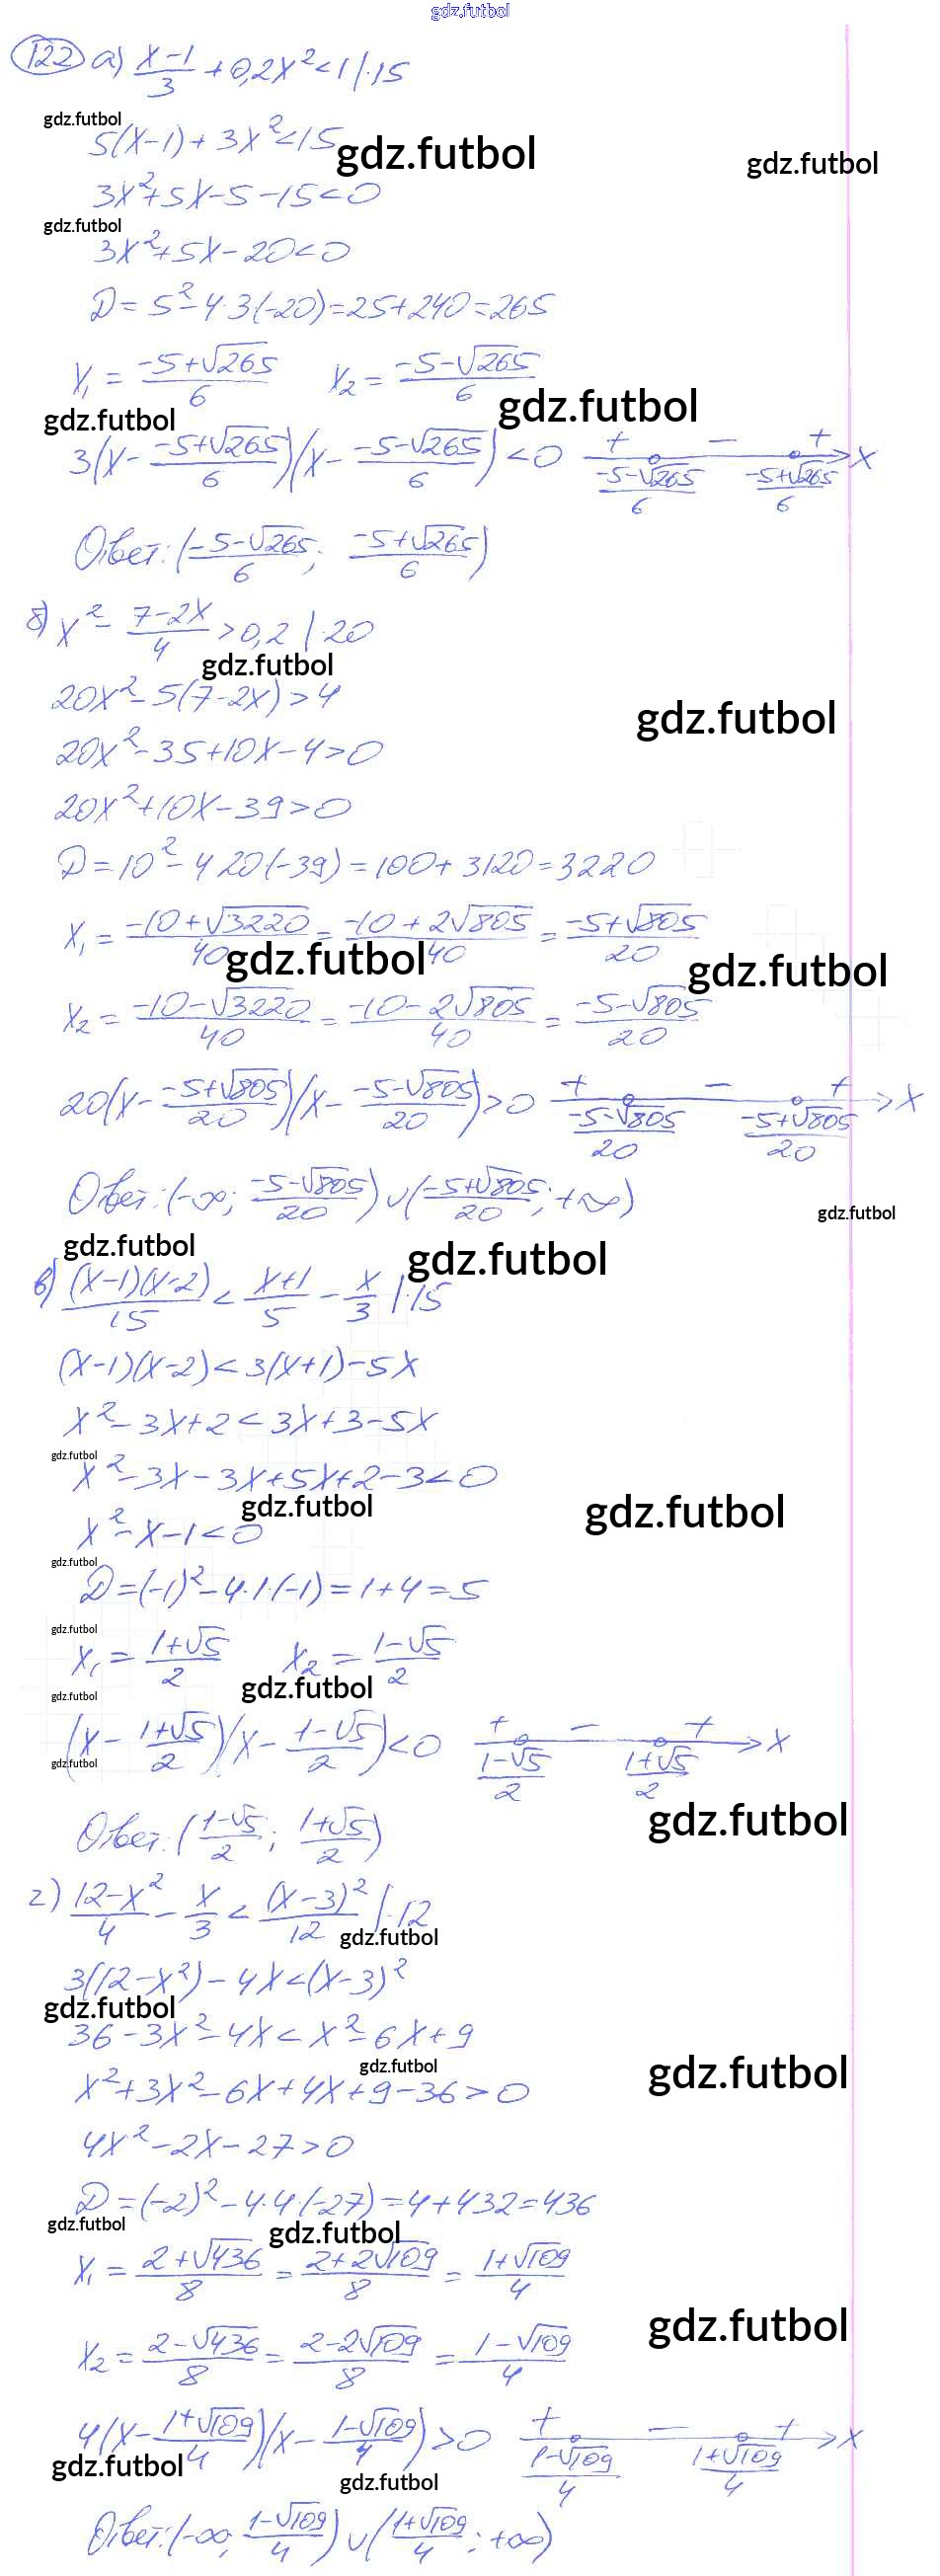 gdz.futbol
122 а) (x-1)/3 + 0,2x² < 1 |·15
gdz.futbol
5(x-1) + 3x² < 15
gdz.futbol
gdz.futbol
3x² + 5x - 5 - 15 < 0
gdz.futbol
3x² + 5x - 20 < 0
D = 5² - 4·3(-20) = 25 + 240 = 265
x₁ = (-5+√265)/6 x₂ = (-5-√265)/6
gdz.futbol
gdz.futbol
3(x - (-5+√265)/6)(x - (-5-√265)/6) < 0 + - + x
(-5-√265)/6 (-5+√265)/6
Ответ: ((-5-√265)/6; (-5+√265)/6)
б) x² - (7-2x)/4 > 0,2 |·20
gdz.futbol
20x² - 5(7-2x) > 4
gdz.futbol
20x² - 35 + 10x - 4 > 0
20x² + 10x - 39 > 0
D = 10² - 4 20·(-39) = 100 + 3120 = 3220
x₁ = (-10+√3220)/40 = (-10+2√805)/40 = (-5+√805)/20
gdz.futbol
gdz.futbol
x₂ = (-10-√3220)/40 = (-10-2√805)/40 = (-5-√805)/20
20(x - (-5+√805)/20)(x - (-5-√805)/20) > 0 + - + x
(-5-√805)/20 (-5+√805)/20
Ответ: (-∞; (-5-√805)/20) ∪ ((-5+√805)/20; +∞)
gdz.futbol
gdz.futbol
gdz.futbol
в) (x-1)(x-2)/15 < (x+1)/5 - x/3 |·15
(x-1)(x-2) < 3(x+1) - 5x
x² - 3x + 2 < 3x + 3 - 5x
gdz.futbol
x² - 3x - 3x + 5x + 2 - 3 < 0
gdz.futbol
gdz.futbol
x² - x - 1 < 0
gdz.futbol
D = (-1)² - 4·1·(-1) = 1 + 4 = 5
gdz.futbol
x₁ = (1+√5)/2 x₂ = (1-√5)/2
gdz.futbol
gdz.futbol
(x - (1+√5)/2)(x - (1-√5)/2) < 0 + - + x
gdz.futbol
(1-√5)/2 (1+√5)/2
gdz.futbol
Ответ: ((1-√5)/2; (1+√5)/2)
г) (12-x²)/4 - x/3 < (x-3)²/12 |·12
gdz.futbol
3(12-x²) - 4x < (x-3)²
gdz.futbol
36 - 3x² - 4x < x² - 6x + 9
gdz.futbol
gdz.futbol
x² + 3x² - 6x + 4x + 9 - 36 > 0
4x² - 2x - 27 > 0
D = (-2)² - 4·4·(-27) = 4 + 432 = 436
gdz.futbol
gdz.futbol
x₁ = (2+√436)/8 = (2+2√109)/8 = (1+√109)/4
gdz.futbol
x₂ = (2-√436)/8 = (2-2√109)/8 = (1-√109)/4
4(x - (1+√109)/4)(x - (1-√109)/4) > 0 + - + x
(1-√109)/4 (1+√109)/4
gdz.futbol
gdz.futbol
Ответ: (-∞; (1-√109)/4) ∪ ((1+√109)/4; +∞)